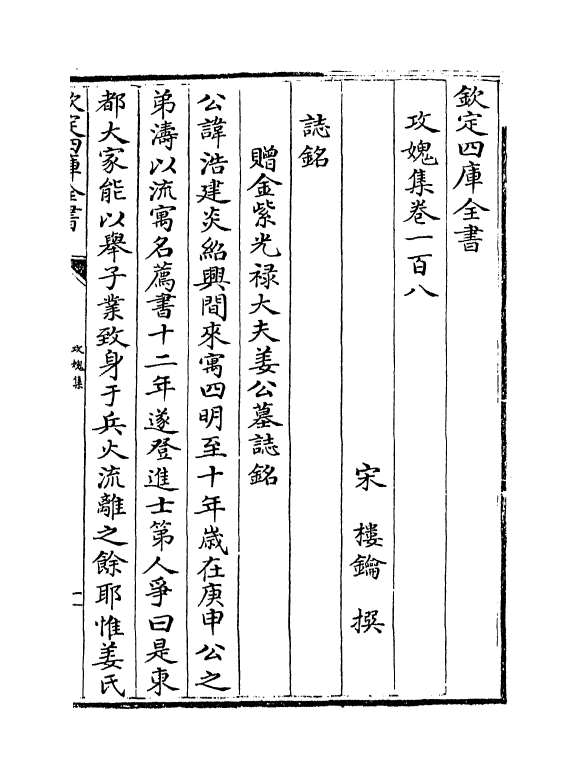 欽定四庫全書
攻媿集卷一百八
宋 樓鑰 撰
誌銘
贈金紫光禄大夫姜公墓誌銘
公諱浩建炎紹興間來寓四明至十年歳在庚申公之
弟濤以流寓名薦書十二年遂登進士第人爭曰是東
都大家能以舉子業致身于兵火流離之餘耶惟姜氏
欽定四庫全書
攻媿集
一